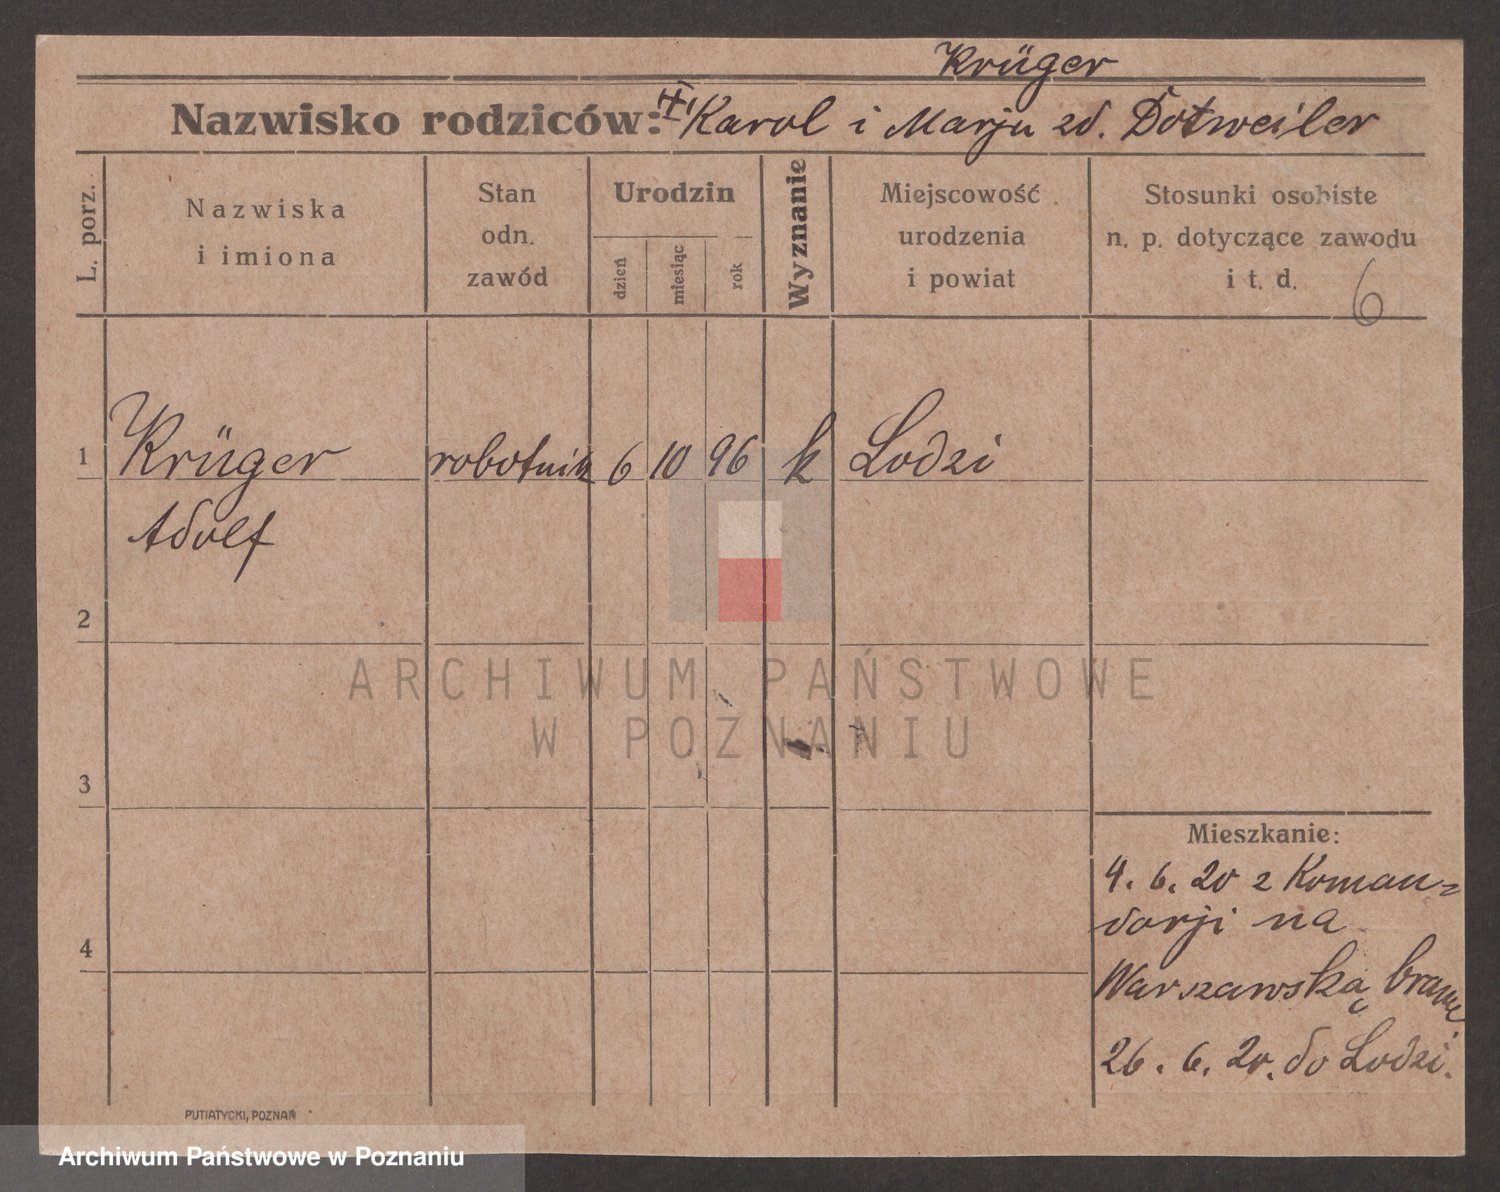 Krüger
Nazwisko rodziców: Karol i Marju zd. Dotweiler
L. porz.
Nazwiska
i imiona
Stan
odn.
zawód
Urodzin
dzień
miesiąc
rok
Wyznanie
Miejscowość
urodzenia
i powiat
Stosunki osobiste
n. p. dotyczące zawodu
i t. d.
6
1 Krüger robotnik 6 10 96 k Lodzi
Adolf
2
3
4
Mieszkanie:
4. 6. 20 z Koman=
dorji na
Warszawską bramę.
26. 6. 20. do Lodzi.
PUTIATYCKI, POZNAŃ
ARCHIWUM PAŃSTWOWE
W POZNANIU
Archiwum Państwowe w Poznaniu